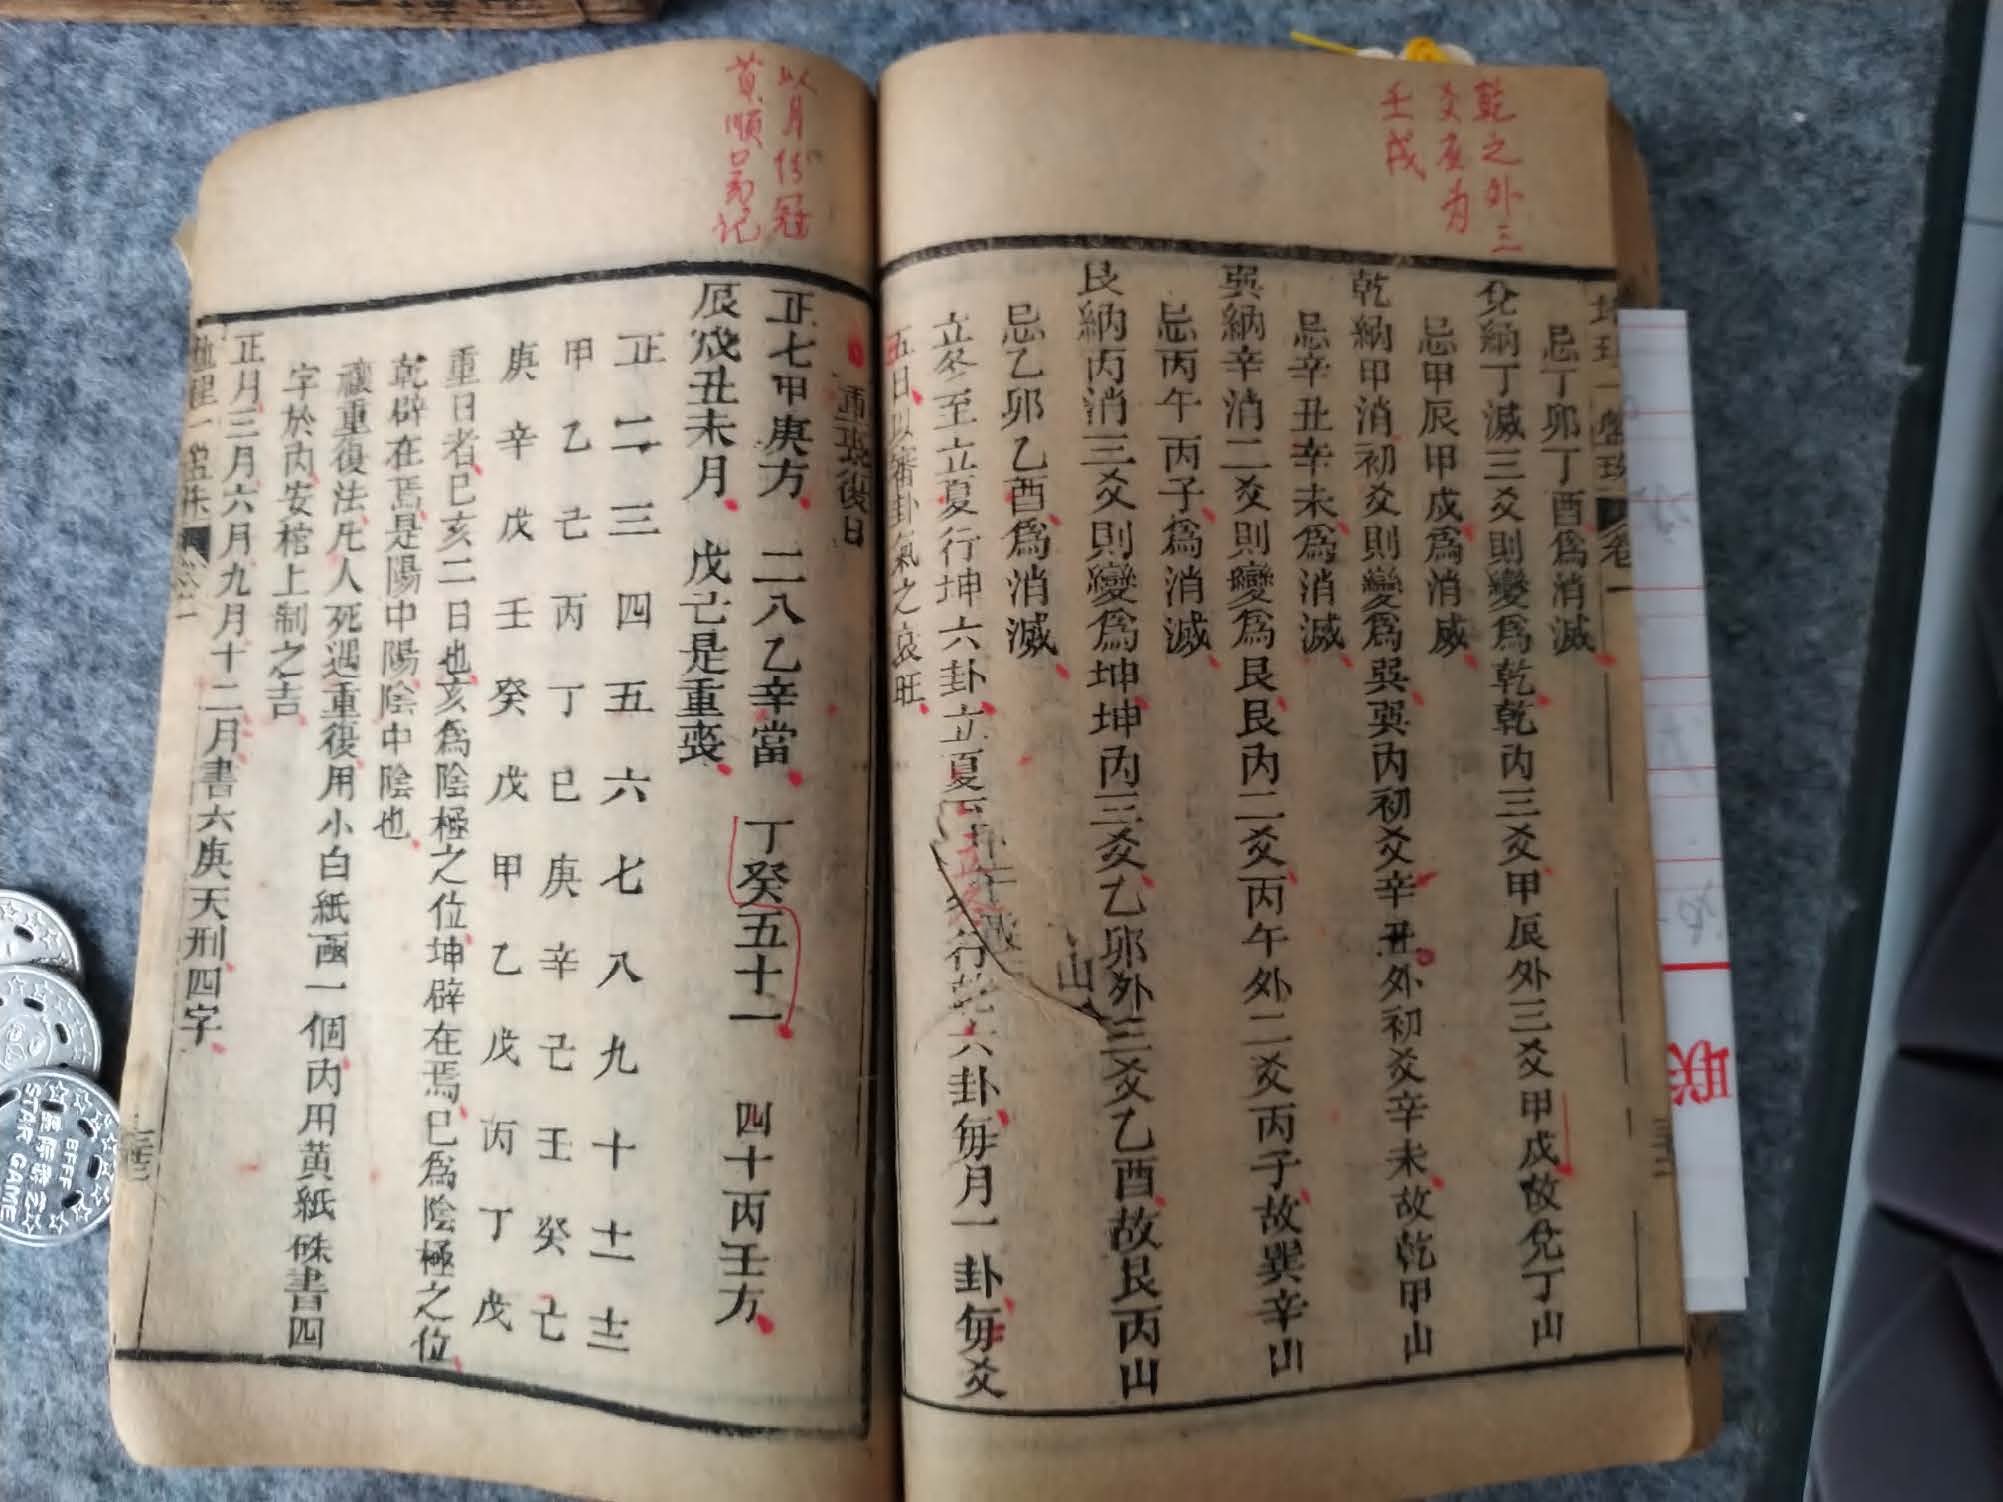 乾之外三
爻應为
壬戌
忌丁卯丁酉為消滅
兌納丁滅三爻則變為乾乾内三爻甲辰外三爻甲戌故兌丁山
忌甲辰甲戍為消烕
乾納甲消初爻則變為巽巽内初爻辛丑外初爻辛未故乾甲山
忌辛丑辛未為消滅
巽納辛消二爻則變為艮艮内二爻丙午外二爻丙子故巽辛山
忌丙午丙子為消滅
艮納丙消三爻則變為坤坤内三爻乙卯外三爻乙酉故艮丙山
忌乙卯乙酉為消滅
立冬至立夏行坤六卦立夏至立冬行乾六卦每月一卦每爻
五日以審卦氣之衰旺
卷一
以月
黄順昌記
重喪復日
正七甲庚方 二八乙辛當 丁癸五十一 四十丙壬方
辰戌丑未月 戊己是重喪
正二三四五六七八九十十一十二
甲乙己丙丁巳庚辛己壬癸亡
庚辛戊壬癸戊甲乙戊丙丁戊
重日者已亥二日也亥為陰極之位坤辟在焉巳為陰極之位
乾辟在焉是陽中陽陰中陰也
禳重復法凡人死遇重復用小白紙凾一個内用黄紙硃書四
字於内安棺上制之吉
正月三月六月九月十二月書六庚天刑四字
联
EFFF
STAR GAME